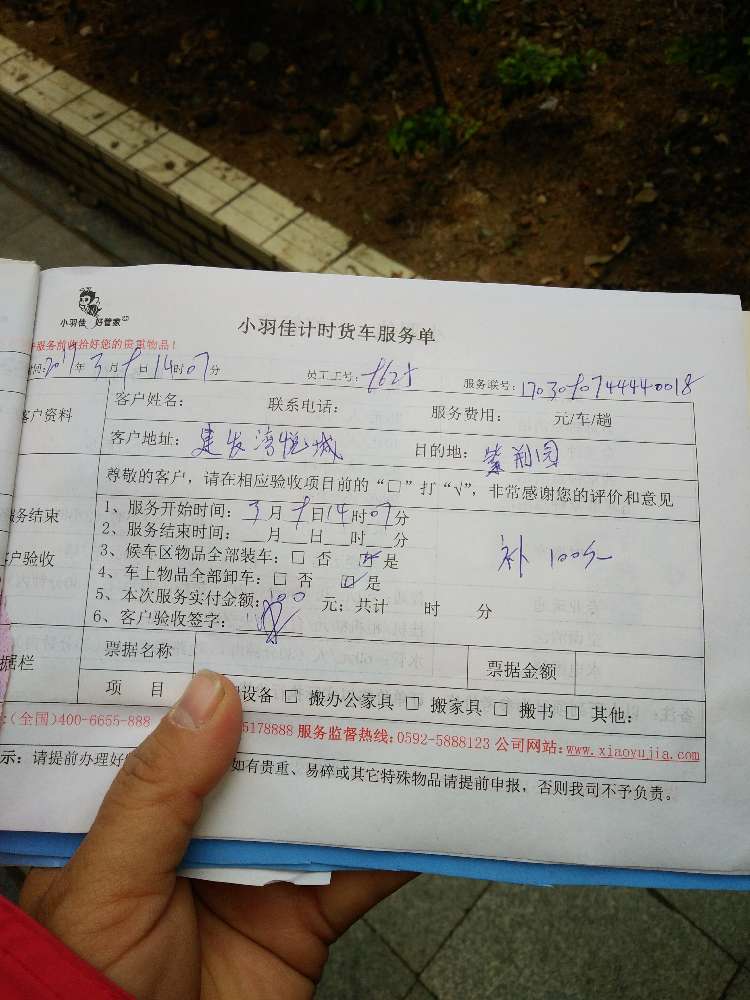 小羽佳 好管家
小羽佳计时货车服务单
服务前收拾好您的贵重物品！
2017年3月9日14时07分 员工工号: 服务联号:
客户资料 客户姓名: 联系电话: 服务费用: 元/车/趟
客户地址: 建发湾悦城 目的地: 紫荆园
尊敬的客户，请在相应验收项目前的“□”打“√”，非常感谢您的评价和意见
服务结束
客户验收
1、服务开始时间: 3月9日14时07分
2、服务结束时间: __月__日__时__分
3、候车区物品全部装车: □ 否 ☑是
补 100
4、车上物品全部卸车: □ 否 ☑是
5、本次服务实付金额: 100 元；共计 时 分
6、客户验收签字:
据栏 票据名称 票据金额
项 目 设备 □ 搬办公家具 □ 搬家具 □ 搬书 □ 其他:
:(全国)400-6655-888 5178888 服务监督热线:0592-5888123 公司网站:www.xiaoyujia.com
示: 请提前办理好 如有贵重、易碎或其它特殊物品请提前申报，否则我司不予负责。